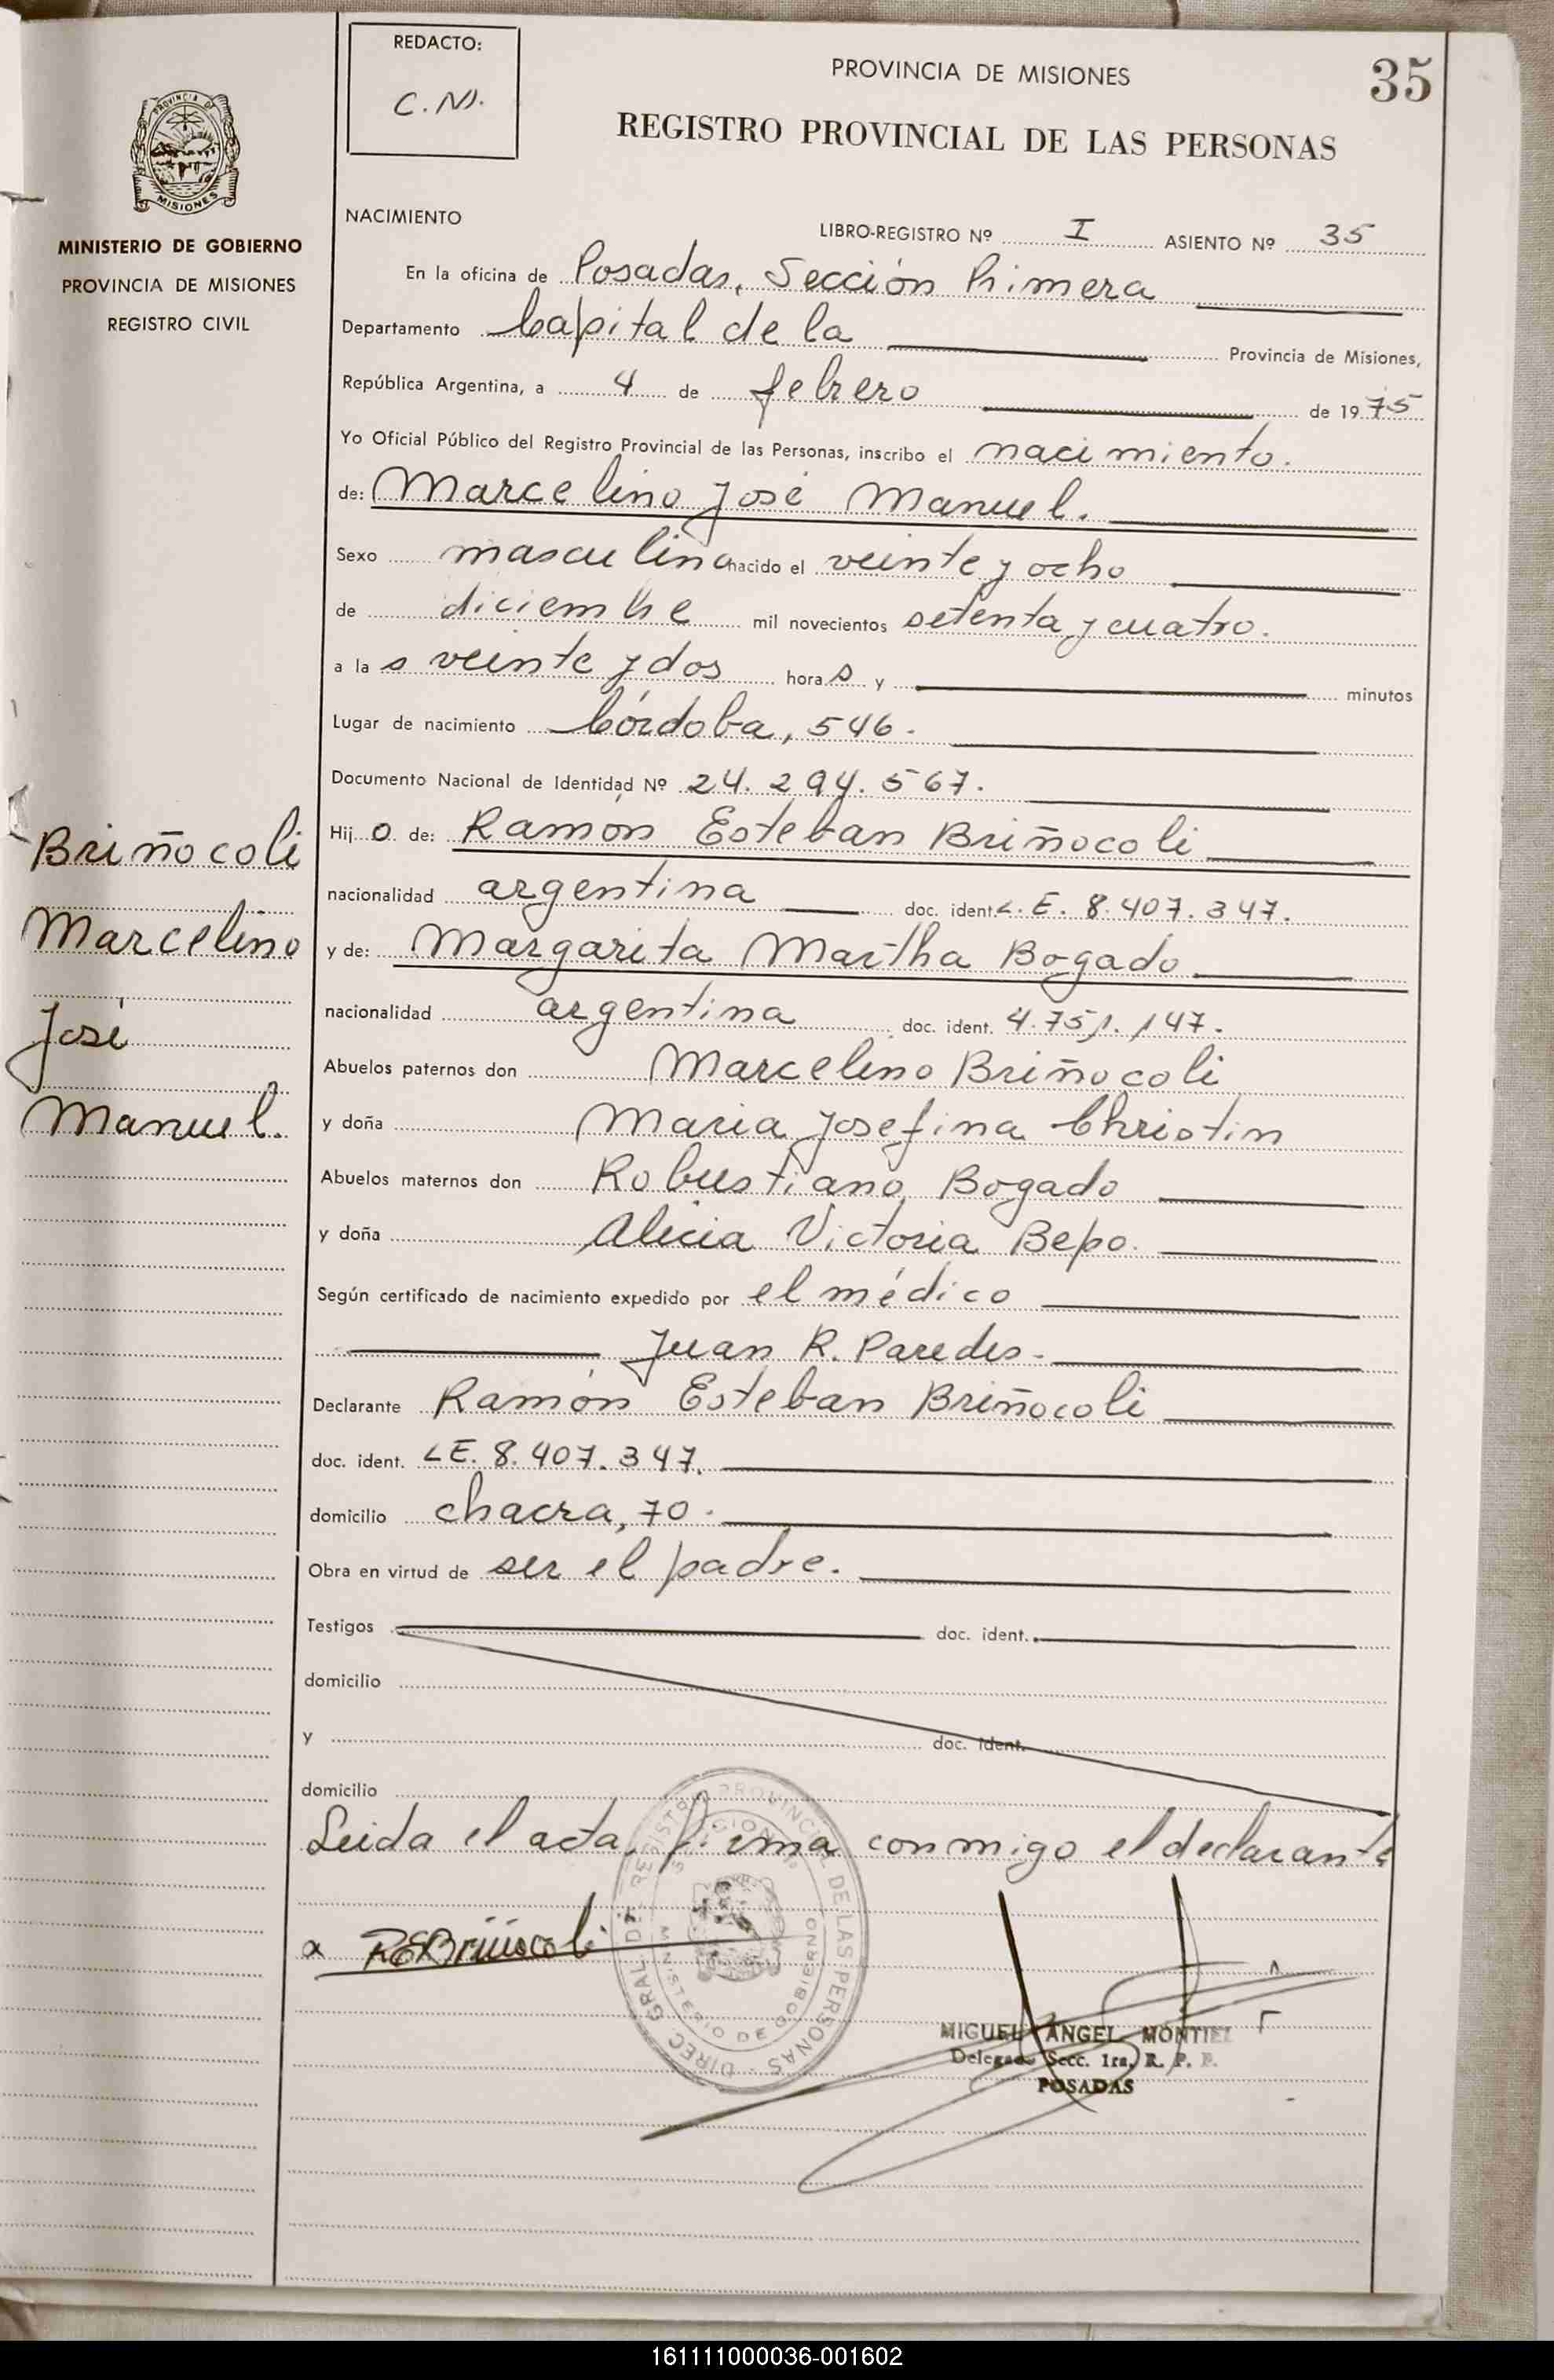 REDACTO:
C.N.
PROVINCIA DE MISIONES
35
REGISTRO PROVINCIAL DE LAS PERSONAS
PROVINCIA DE
MISIONES
MINISTERIO DE GOBIERNO
PROVINCIA DE MISIONES
REGISTRO CIVIL
NACIMIENTO
LIBRO-REGISTRO Nº I ASIENTO Nº 35
En la oficina de Posadas, Sección Primera
Departamento Capital de la Provincia de Misiones,
República Argentina, a 4 de febrero de 1975
Yo Oficial Público del Registro Provincial de las Personas, inscribo el nacimiento.
de: Marcelino José Manuel.
Sexo masculino nacido el veinte y ocho
de diciembre mil novecientos setenta y cuatro.
a las veinte y dos horas y minutos
Lugar de nacimiento Córdoba, 546.
Documento Nacional de Identidad Nº 24.294.567.
Hijo de: Ramón Esteban Briñocoli
nacionalidad argentina doc. ident. L.E. 8.407.347.
y de: Margarita Martha Bogado
nacionalidad argentina doc. ident. 4.751.147.
Abuelos paternos don Marcelino Briñocoli
y doña Maria Josefina Christin
Abuelos maternos don Robustiano Bogado
y doña Alicia Victoria Bepo.
Según certificado de nacimiento expedido por el médico
Juan R. Paredes.
Declarante Ramón Esteban Briñocoli
doc. ident. LE. 8.407.347.
domicilio chacra, 70.
Obra en virtud de ser el padre.
Testigos doc. ident.
domicilio
y doc. ident.
domicilio
Leida el acta, firma conmigo el declarante
x REBriñocoli
DIREC. GRAL DE REGISTRO PROVINCIAL DE LAS PERSONAS
MINISTERIO DE GOBIERNO
MIGUEL ANGEL MONTIEL
Delegado Secc. 1ra. R. P. P.
POSADAS
Briñocoli
Marcelino
José
Manuel.
161111000036-001602